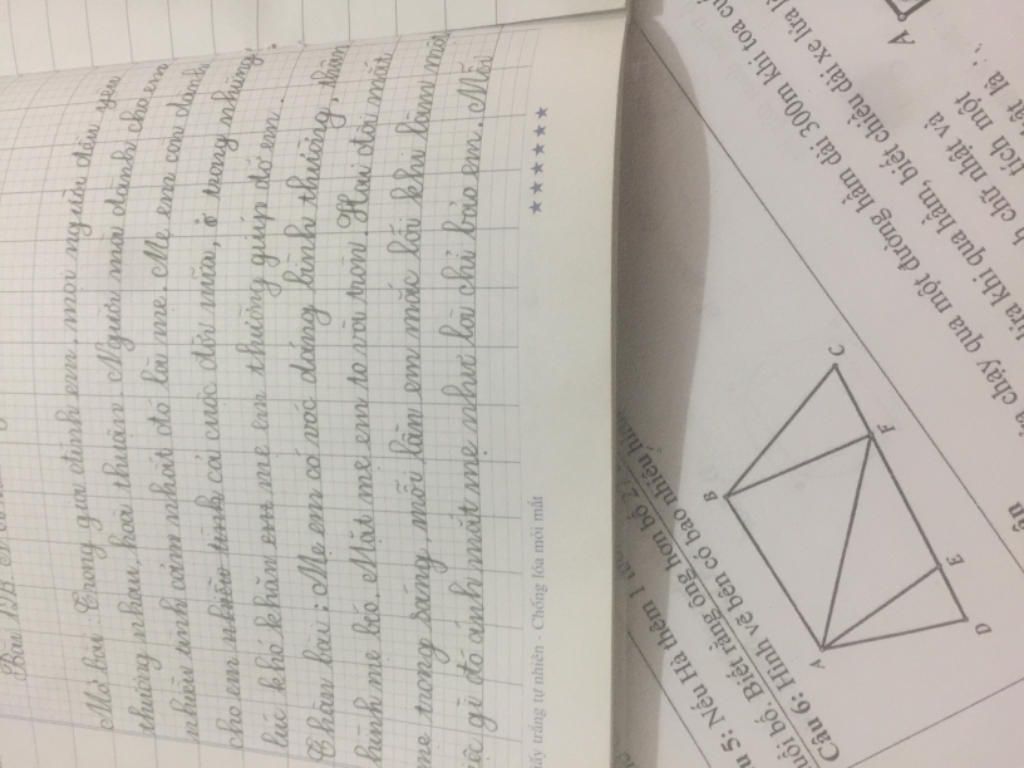 Mở bài: Trong gia đình em, mọi người đều yêu
thương nhau, hoà thuận. Người mà dành cho em
nhiều tình cảm nhất đó là mẹ. Mẹ em còn dành
cho em nhiều tình cả cuộc đời nữa, ở trong những
lúc khó khăn mẹ em thường giúp đỡ em.
Thân bài: Mẹ em có vóc dáng bình thường, thân
hình mẹ bé. Mặt mẹ em to và tròn. Hai đôi mắt
mẹ trong sáng mỗi lần em mắc lỗi khi làm một
gì đó ánh mắt mẹ như là chỉ bảo em. Mỗi
giấy trắng tự nhiên - Chống lóa mỏi mắt
5: Nếu Hà thêm 1
tuổi bố. Biết rằng ông hơn bố 2
Câu 6: Hình vẽ bên có bao nhiêu hình
A
B
C
D
E
F
chạy qua một đường hầm dài 300m khi toa cuối
lửa khi qua hầm, biết chiều dài xe lửa là
chữ nhật và
tích một
là :
A